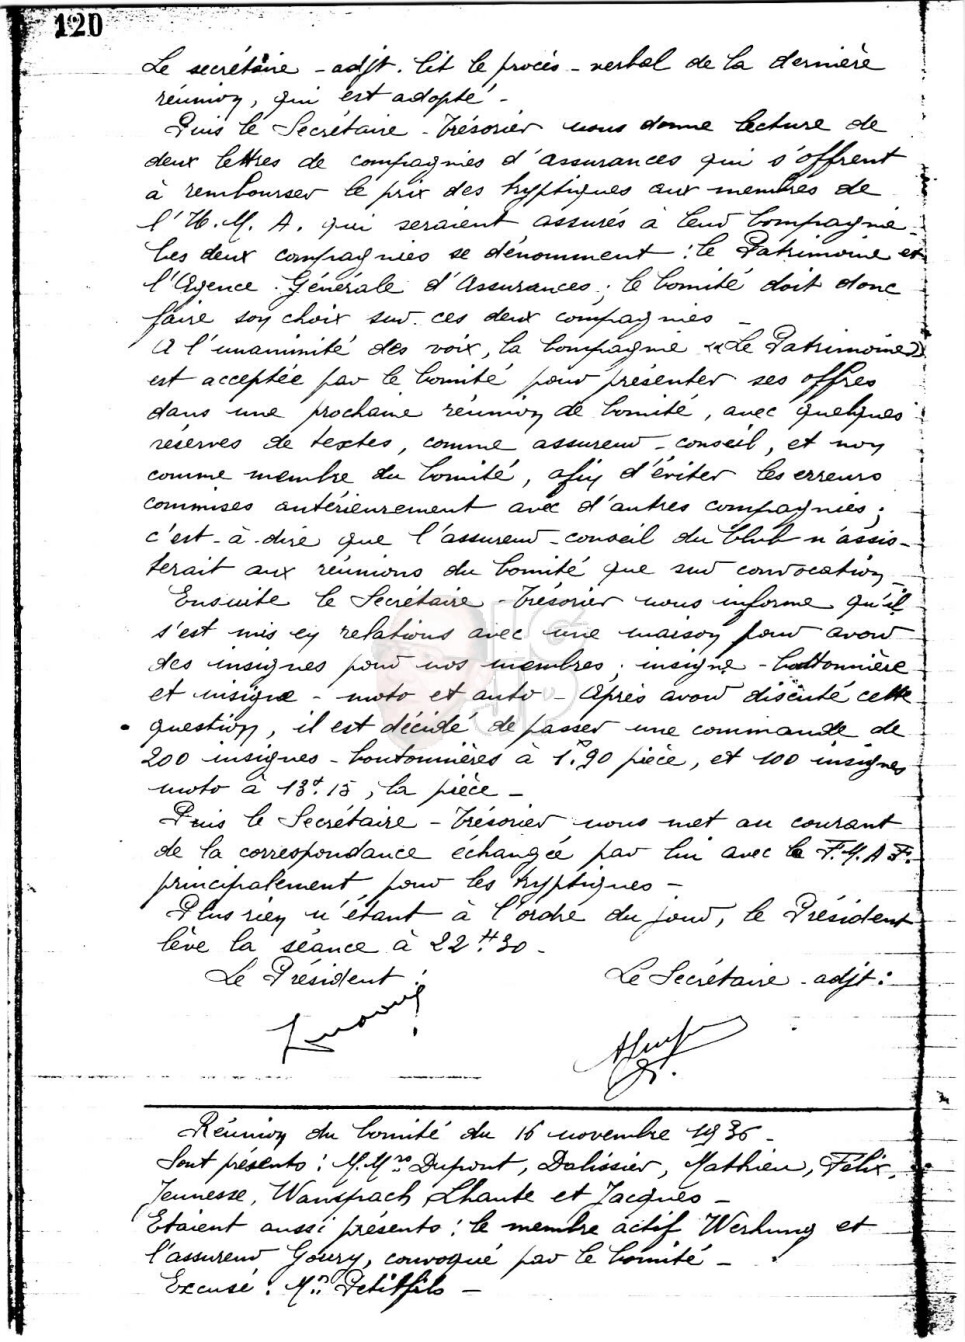 120
Le secrétaire - adjt. lit le procès - verbal de la dernière
réunion, qui est adopté -
Puis le Secrétaire - Trésorier nous donne lecture de
deux lettres de compagnies d'assurances qui s'offrent
à rembourser le prix des tryptiques aux membres de
l'U.M.A. qui seraient assurés à leur Compagnie -
Les deux compagnies se dénomment : le Patrimoine et
l'Agence Générale d'Assurances ; le Comité doit donc
faire son choix sur ces deux compagnies -
A l'unanimité des voix, la Compagnie "Le Patrimoine"
est acceptée par le Comité pour présenter ses offres
dans une prochaine réunion de Comité, avec quelques
réserves de textes, comme assureur - conseil, et non
comme membre du Comité, afin d'éviter les erreurs
commises antérieurement avec d'autres compagnies ;
c'est - à - dire que l'assureur - conseil du Club n'assis-
terait aux réunions du Comité que sur convocation -
Ensuite le Secrétaire - Trésorier nous informe qu'il
s'est mis en relations avec une maison pour avoir
des insignes pour nos membres : insigne - bottonnière
et insigne - moto et auto - Après avoir discuté cette
question, il est décidé de passer une commande de
200 insignes - boutonnières à 1F.90 pièce, et 100 insignes
moto à 13F.15, la pièce -
Puis le Secrétaire - Trésorier nous met au courant
de la correspondance échangée par lui avec la F.M.A.F.
principalement pour les tryptiques -
Plus rien n'étant à l'ordre du jour, le Président
lève la séance à 22H30 -
Le Président :
Le Secrétaire - adjt :
Réunion du Comité du 16 novembre 1936 -
Sont présents : M.Mrs Dupont, Dalissier, Mathieu, Félix,
Jeunesse, Wanspach, Lhante et Jacques -
Etaient aussi présents : le membre actif Werhung et
l'assureur Goury, convoqué par le Comité -
Excusé : Mr Petitfils -